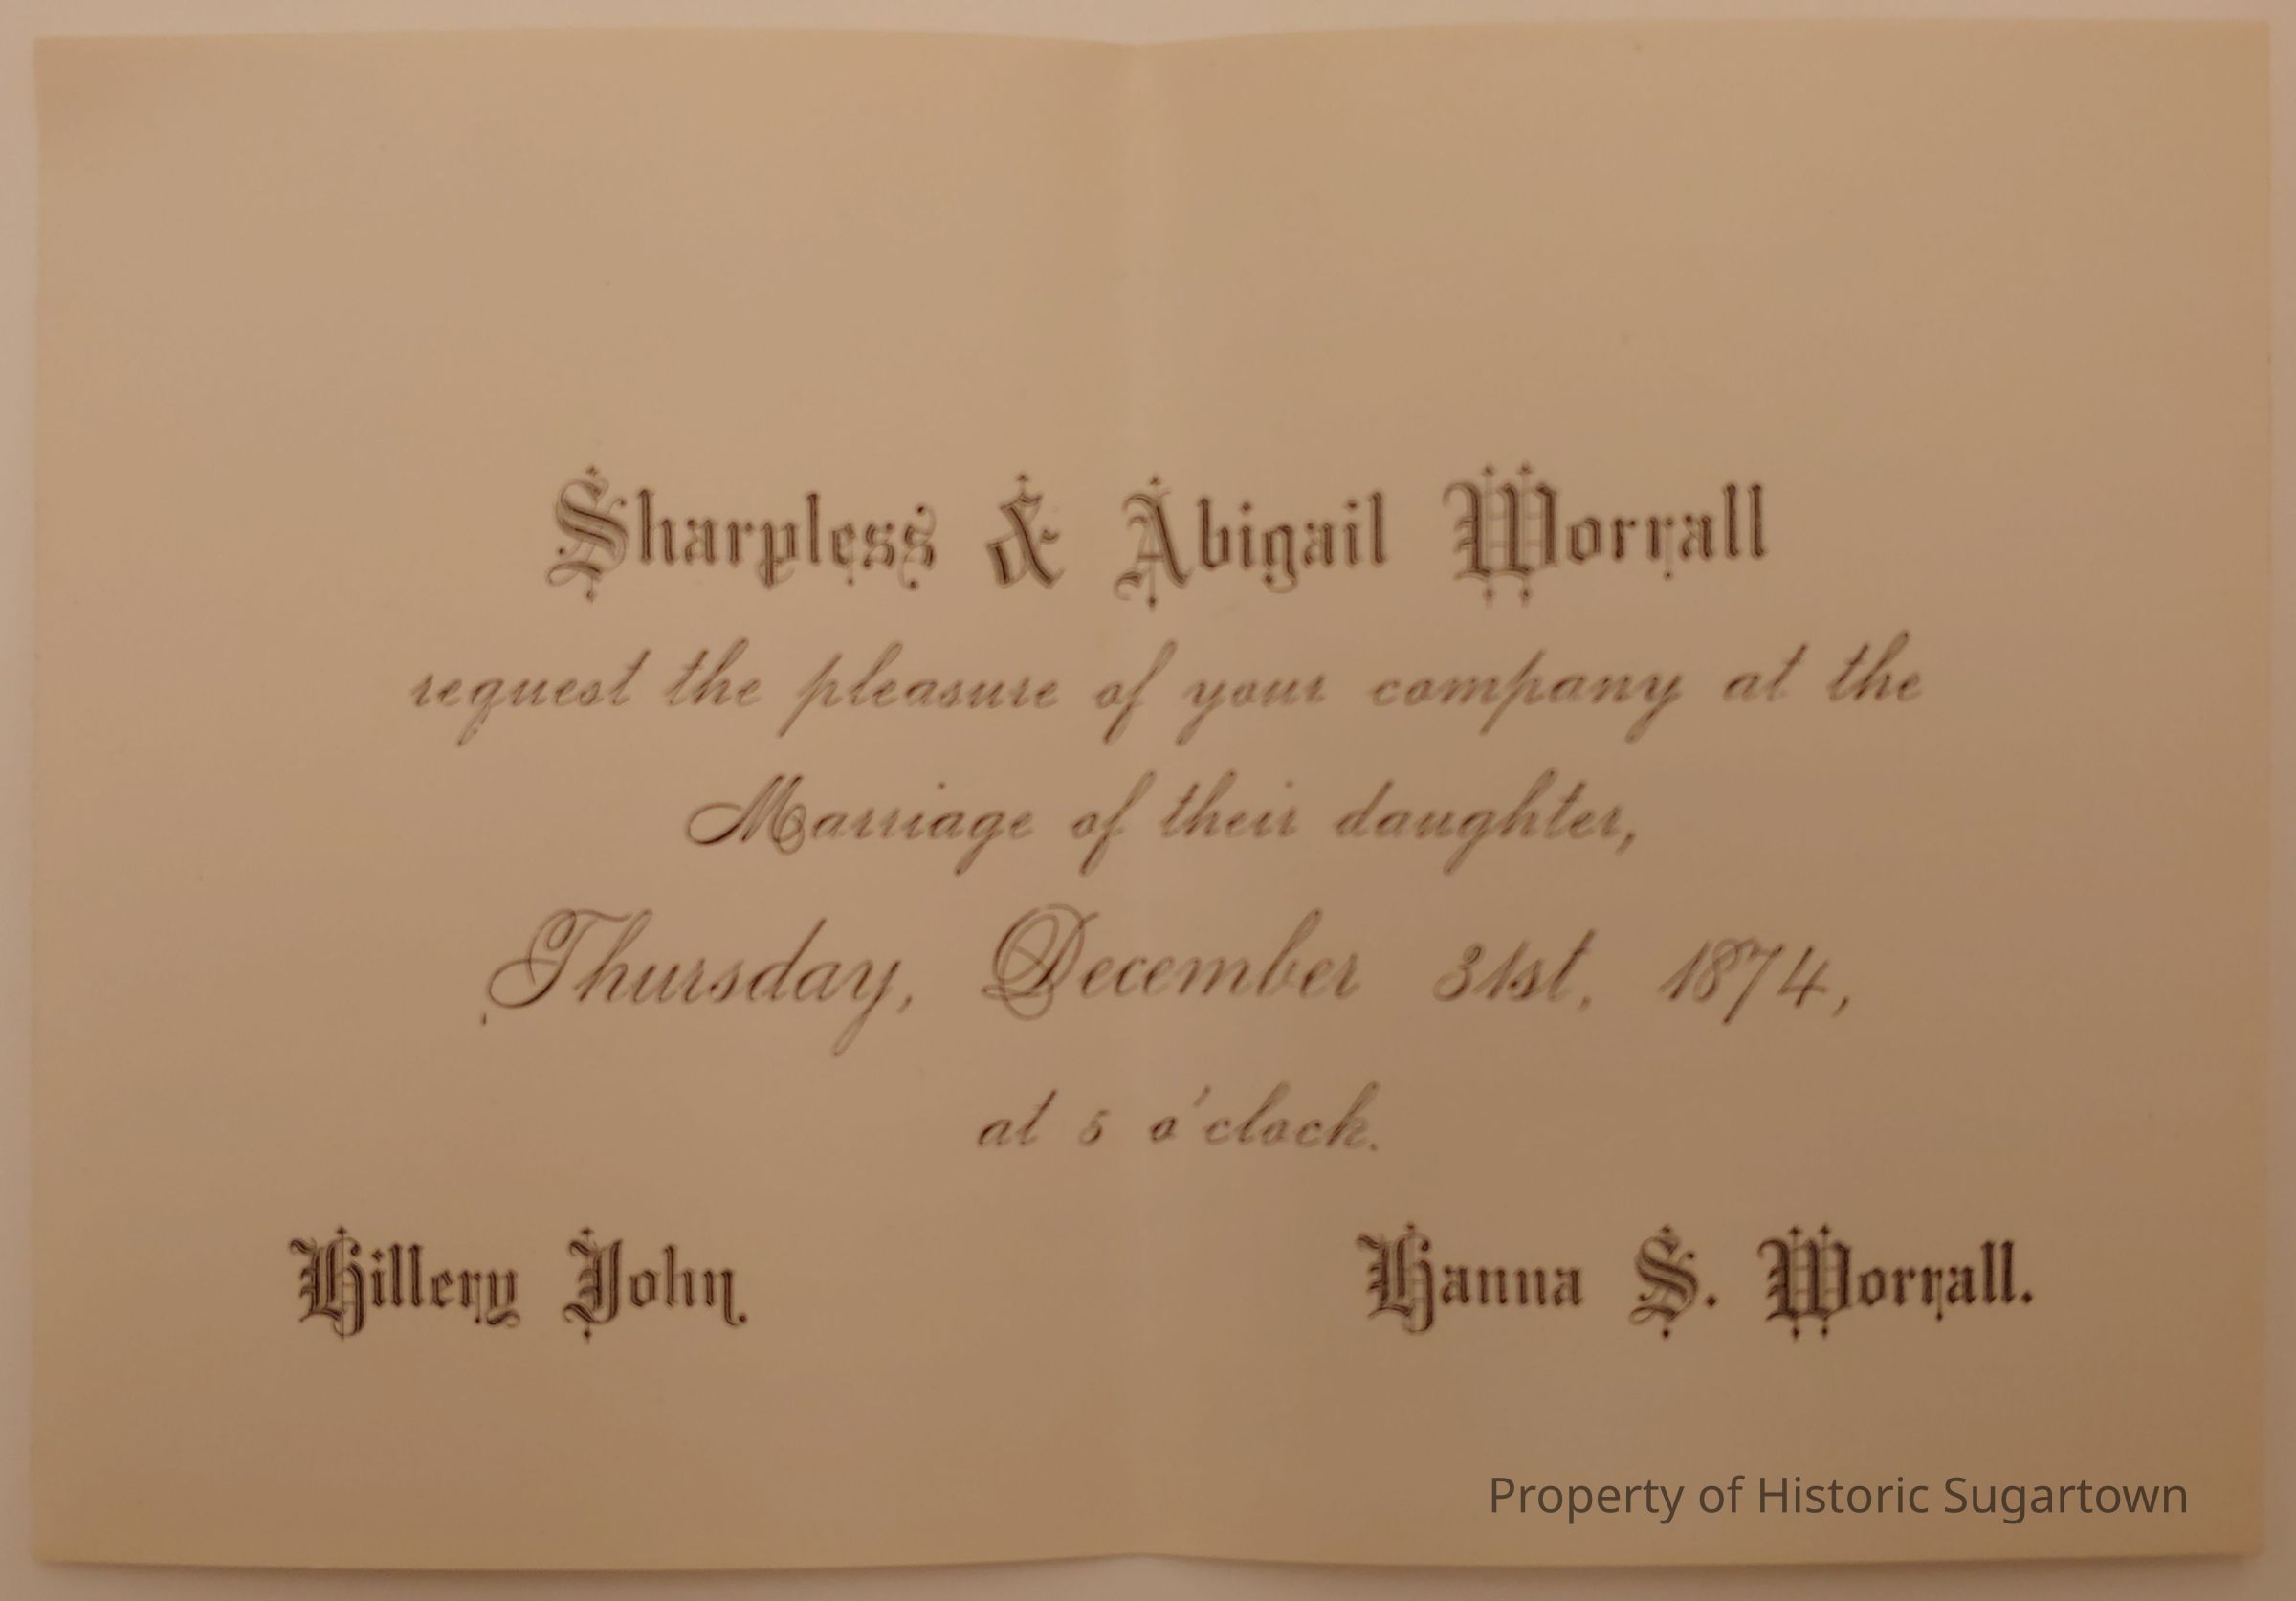 Sharpless & Abigail Worrall
request the pleasure of your company at the
Marriage of their daughter,
Thursday, December 31st, 1874,
at 5 o'clock.
Hillery John. Hanna S. Worrall.
Property of Historic Sugartown